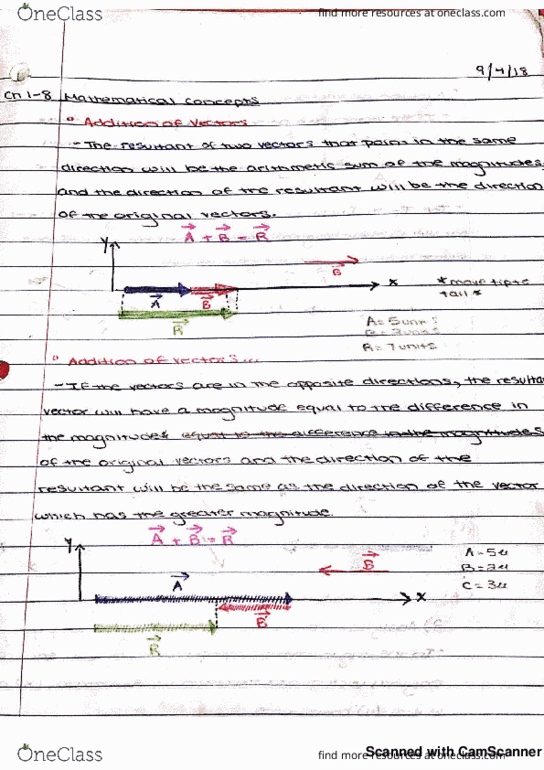 OneClass
find more resources at oneclass.com
9/4/18
Ch 1-8 Mathematical concepts
° Addition of Vectors
- The resultant of two vectors that point in the same
direction will be the arithmetic sum of the magnitudes,
and the direction of the resultant will be the direction
of the original vectors.
A + B = R
Y
B
X
*move tip to
tail*
A
B
R
A = 5 units
R = 7 units
° Addition of vectors...
- If the vectors are in the opposite directions, the resultant
vector will have a magnitude equal to the difference in
the magnitudes equal to the difference in the magnitudes
of the original vectors and the direction of the
resultant will be the same as the direction of the vector
which has the greater magnitude.
A + B = R
Y
B
A = 5u
B = 2u
C = 3u
A
X
B
R
Scanned with CamScanner
OneClass
find more resources at oneclass.com